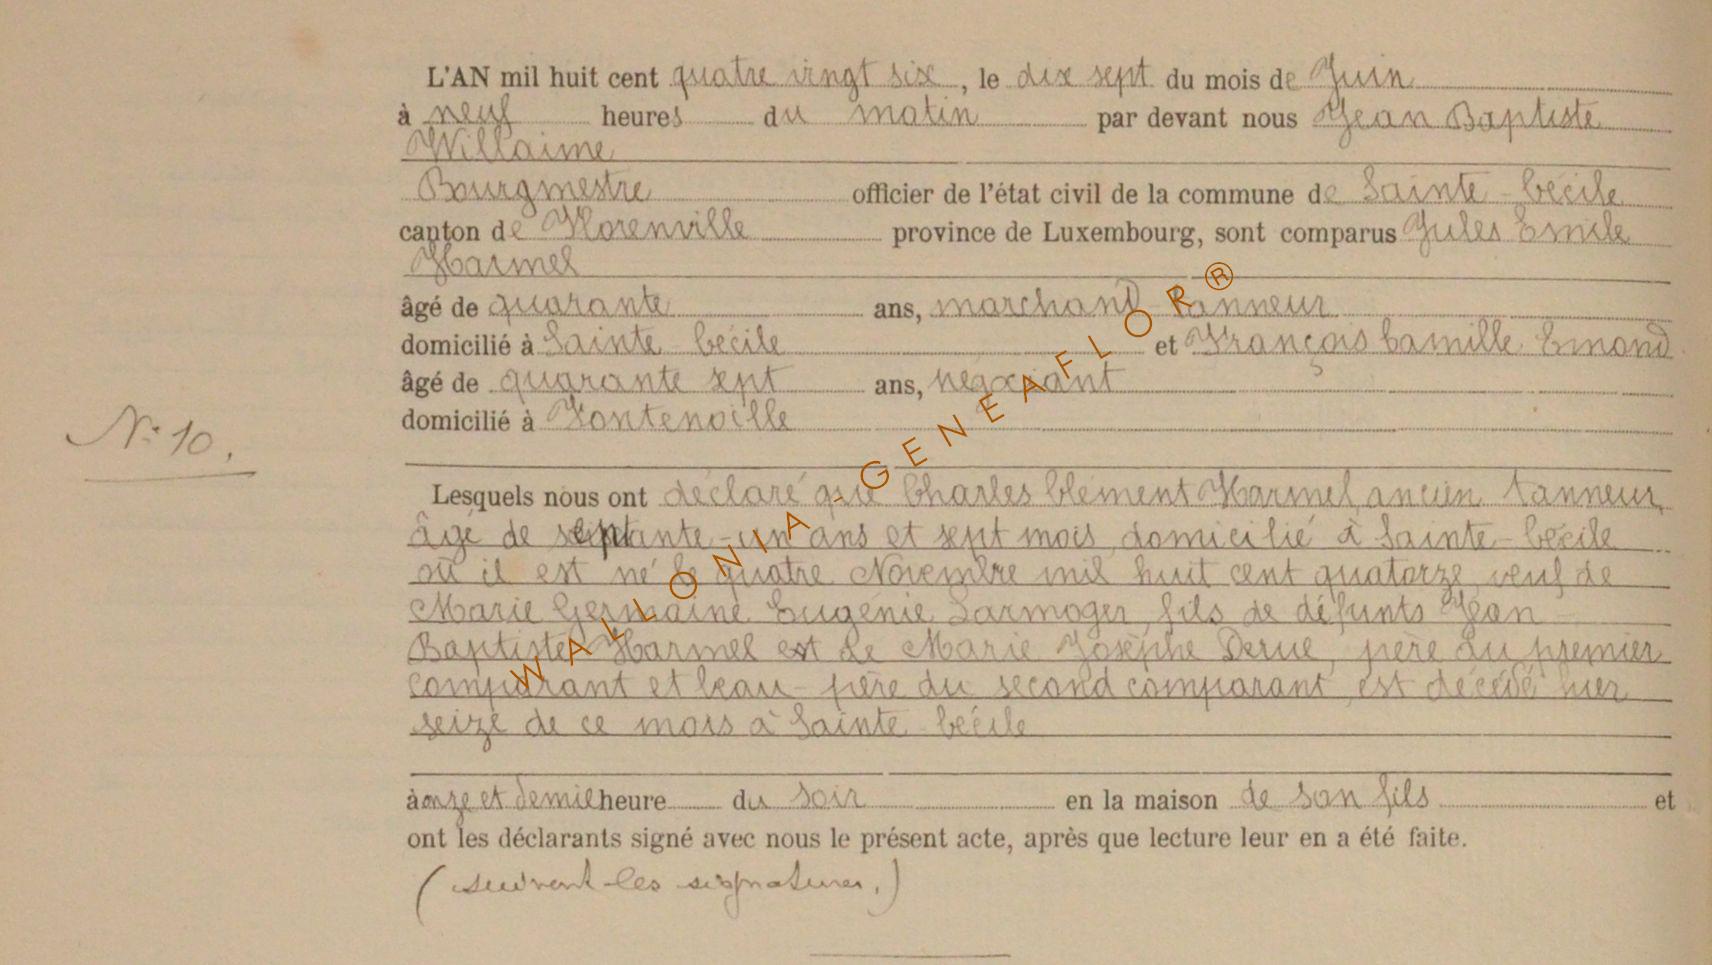 L'AN mil huit cent quatre vingt six, le dix sept du mois de Juin
à neuf heures du matin par devant nous Jean Baptiste
Willaime
Bourgmestre officier de l'état civil de la commune de Sainte-Cécile
canton de Florenville province de Luxembourg, sont comparus Jules Emile
Harmel
âgé de quarante ans, marchand tanneur
domicilié à Sainte-Cécile et François Camille Emond
âgé de quarante sept ans, négociant
domicilié à Fontenoille
N° 10.
Lesquels nous ont déclaré que Charles Clément Harmel, ancien tanneur,
âgé de septante-un ans et sept mois, domicilié à Sainte-Cécile
où il est né le quatre Novembre mil huit cent quatorze, veuf de
Marie Germaine Eugénie, fils de défunts Jean-
Baptiste Harmel et de Marie Josèphe Derue, père du premier
comparant et beau-père du second comparant, est décédé hier
seize de ce mois à Sainte-Cécile
à onze et demie heure du soir en la maison de son fils et
ont les déclarants signé avec nous le présent acte, après que lecture leur en a été faite.
(suivent les signatures.)
WALLONIA-GENEAFLOR®